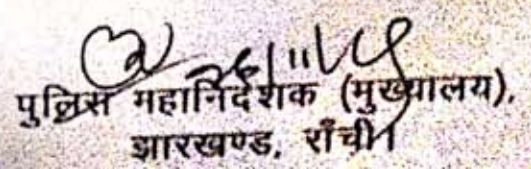 पुलिस महानिदेशक (मुख्यालय),
झारखण्ड, राँची।